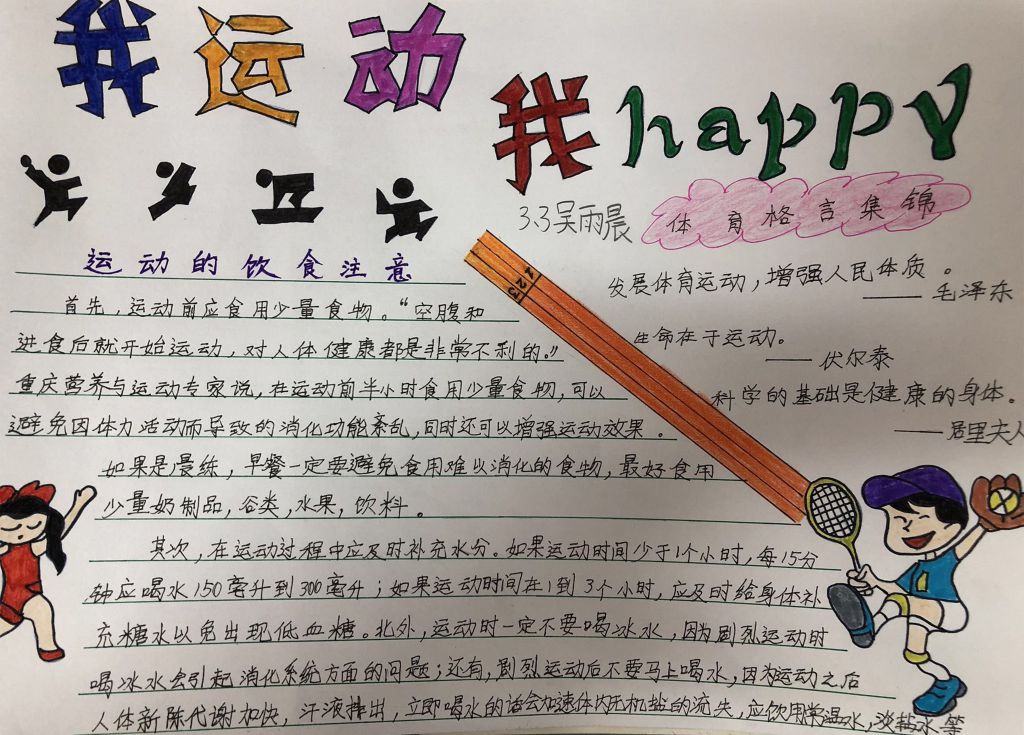 我运动
我happy
3.3吴雨晨
体育格言集锦
运动的饮食注意
首先,运动前应食用少量食物。“空腹和
进食后就开始运动,对人体健康都是非常不利的。”
重庆营养与运动专家说,在运动前半小时食用少量食物,可以
避免因体力活动而导致的消化功能紊乱,同时还可以增强运动效果。
如果是晨练,早餐一定要避免食用难以消化的食物,最好食用
少量奶制品,谷类,水果,饮料。
其次,在运动过程中应及时补充水分。如果运动时间少于1个小时,每15分
钟应喝水150毫升到300毫升;如果运动时间在1到3个小时,应及时给身体补
充糖水以免出现低血糖。北外,运动时一定不要喝冰水,因为剧烈运动时
喝冰水会引起消化系统方面的问题;还有,剧烈运动后不要马上喝水,因为运动之后
人体新陈代谢加快,汗液排出,立即喝水的话会加速体内无机盐的流失,应饮用常温水,淡盐水等
发展体育运动,增强人民体质。
——毛泽东
生命在于运动。
——伏尔泰
科学的基础是健康的身体。
——居里夫人
1 2 3